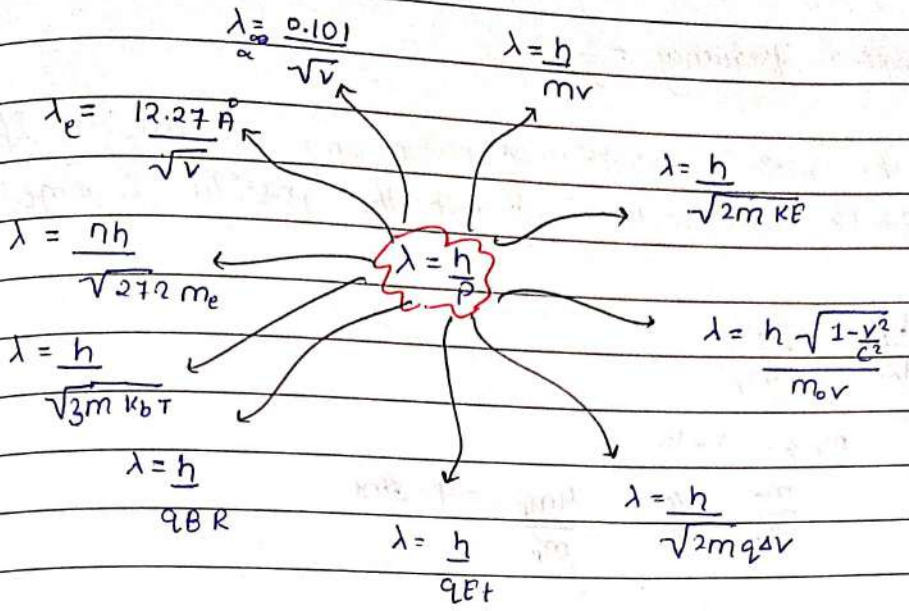 λ∝ = 0.101 / √v
λ = h / mv
λe = 12.27 Å / √v
λ = h / √2m KE
λ = nh / √272 me
λ = h / P
λ = h √1-v²/c² / m₀v
λ = h / √3m KbT
λ = h / qBR
λ = h / qEt
λ = h / √2mqΔV